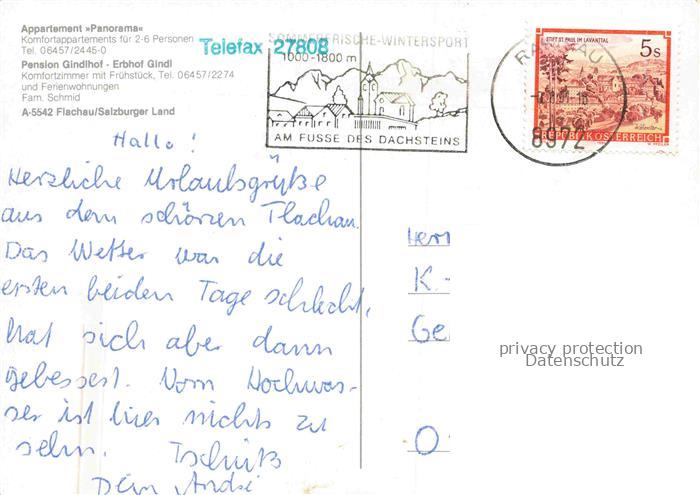 Appartement »Panorama«
Komfortappartements für 2-6 Personen
Tel. 06457/2445-0
Pension Gindlhof - Erbhof Gindl
Komfortzimmer mit Frühstück, Tel. 06457/2274
und Ferienwohnungen
Fam. Schmid
A-5542 Flachau/Salzburger Land
Telefax 27808
SOMMERFRISCHE-WINTERSPORT
1000-1800 m
AM FUSSE DES DACHSTEINS
STIFT ST. PAUL IM LAVANTTAL
5s
8972
REPUBLIK ÖSTERREICH
Hallo!
Herzliche Urlaubsgrüße
aus dem schönen Flachau.
Das Wetter war die
ersten beiden Tage schlecht,
hat sich aber dann
gebessert. Vom Hochwas-
ser ist hier nichts zu
sehn. Tschüß
Dein André
Herr
K.
Ge
O
privacy protection
Datenschutz